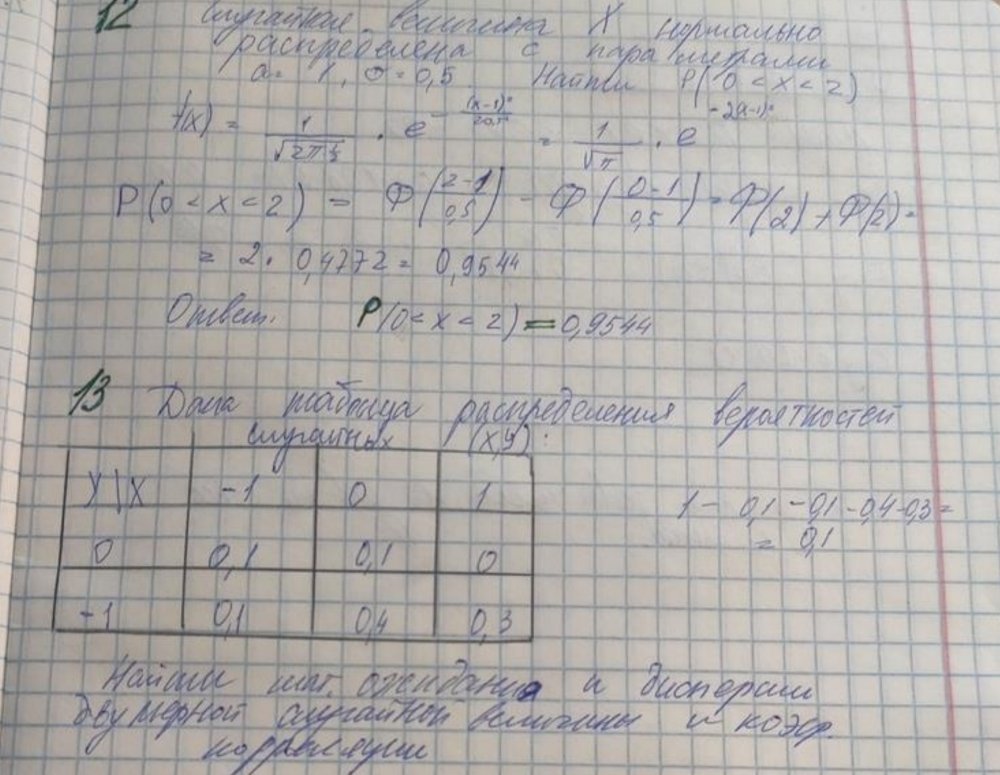 12 Случайная величина X нормально
распределена с параметрами
a = 1, σ = 0,5 Найти P(0 < x < 2)
f(x) = 1/√2π · e = 1/√π · e^-2(x-1)²
P(0 < x < 2) = Ф((2-1)/0,5) - Ф((0-1)/0,5) = Ф(2) + Ф(2) =
= 2 · 0,4772 = 0,9544
Ответ. P(0 < x < 2) = 0,9544
13 Дана таблица распределения вероятностей
случайных (X,Y):
Y\X -1 0 1
0 0,1 0,1 0
-1 0,1 0,4 0,3
1 - 0,1 - 0,1 - 0,4 - 0,3 =
= 0,1
Найти мат. ожидания и дисперсии
двумерной случайной величины и коэф.
корреляции